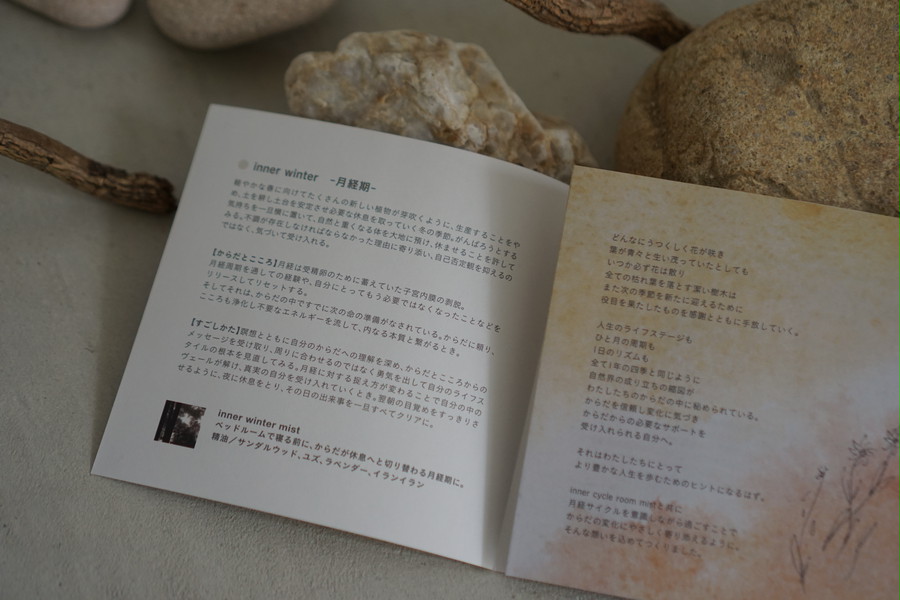 inner winter -月経期-
軽やかな春に向けてたくさんの新しい植物が芽吹くように、生産することをや
め、土を耕し土台を安定させ必要な休息を取っていく冬の季節。がんばろうとする
気持ちを一旦横に置いて、自然と重くなる体を大地に預け、休ませることを許して
みる。不調が存在しなければならなかった理由に寄り添い、自己否定観を抑えるの
ではなく、気づいて受け入れる。
【からだとこころ】月経は受精卵のために蓄えていた子宮内膜の剥脱。
月経周期を通しての経験や、自分にとってもう必要ではなくなったことなどを
リリースしてリセットする。
そしてそれは、からだの中ですでに次の命の準備がなされている。からだに頼り、
こころも浄化し不要なエネルギーを流して、内なる本質と繋がるとき。
【すごしかた】瞑想とともに自分のからだへの理解を深め、からだとこころからの
メッセージを受け取り、周りに合わせるのではなく勇気を出して自分のライフス
タイルの根本を見直してみる。月経に対する捉え方が変わることで自分の中の
ヴェールが解け、真実の自分を受け入れていくとき。翌朝の目覚めをすっきりさ
せるように、夜に休息をとり、その日の出来事を一旦すべてクリアに。
inner winter mist
ベッドルームで寝る前に、からだが休息へと切り替わる月経期に。
精油／サンダルウッド、ユズ、ラベンダー、イランイラン
どんなにうつくしく花が咲き
葉が青々と生い茂っていたとしても
いつか必ず花は散り
全ての枯れ葉を落とす潔い樹木は
また次の季節を新たに迎えるために
役目を果たしたものを感謝とともに手放していく。
人生のライフステージも
ひと月の周期も
1日のリズムも
全て1年の四季と同じように
自然界の成り立ちの縮図が
わたしたちのからだの中に秘められている。
からだを信頼し変化に気づき
からだからの必要なサポートを
受け入れられる自分へ。
それはわたしたちにとって
より豊かな人生を歩むためのヒントになるはず。
inner cycle room mistと共に
月経サイクルを意識しながら過ごすことで
からだの変化にやさしく寄り添えるように。
そんな想いを込めてつくりました。